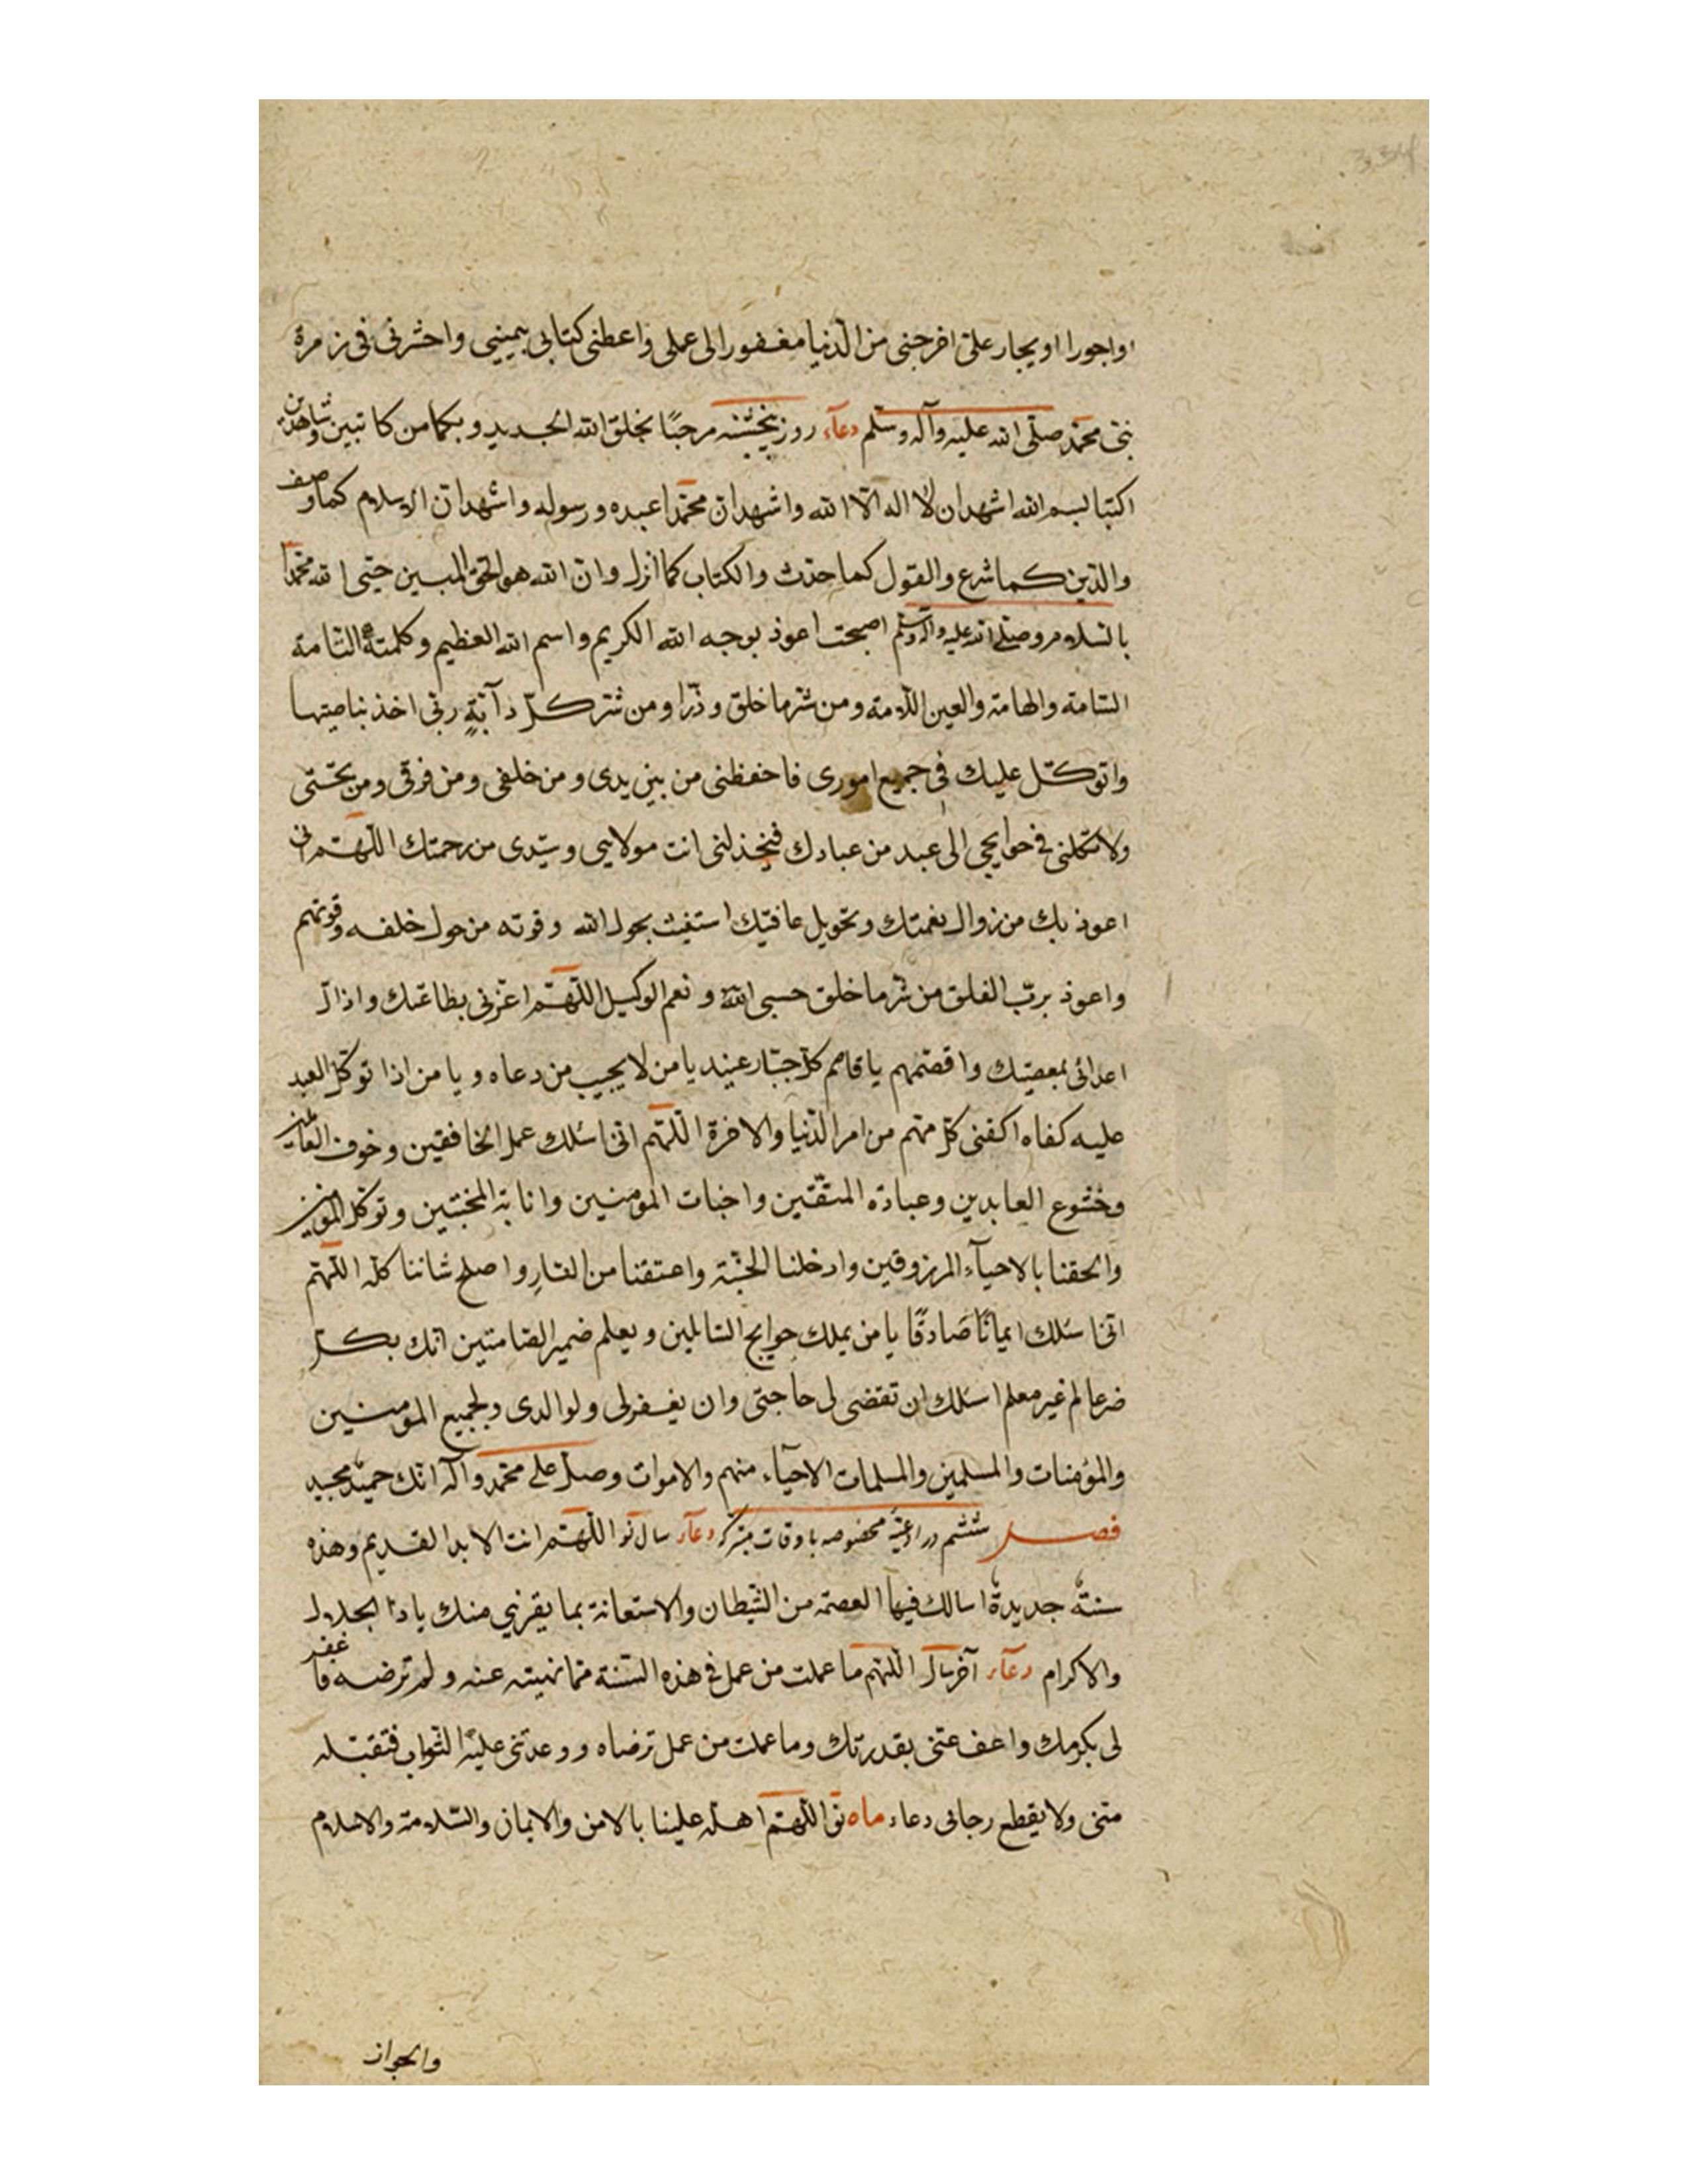 اواجورا او يجار على اخرجنى من الدّنيا مغفورا لى عملى واعطنى كتابى بيمينى واحشرنى فى زمرة
نبىّ محمّد صلّى الله عليه وآله وسلّم دعآء روز پنجشنبه مرحبًا بخلق الله الجديد وبكما من كاتبين وشاهدين
اكتبا بسم الله اشهد ان لا اله الّا الله واشهد انّ محمّدا عبده ورسوله واشهد انّ الاسلام كما وصف
والدّين كما شرع والقول كما حدّث والكتاب كما انزل وانّ الله هو الحقّ المبين حيّى الله محمّدا
بالسّلام وصلّى الله عليه وآله وسلّم اصبحت اعوذ بوجه الله الكريم واسم الله العظيم وكلمته التّامة
السّامة والهامة والعين اللّامه ومن شرّ ما خلق وذرا ومن شرّ كلّ دآبّةٍ ربّى اخذ بناصيتها
واتوكّل عليك فى جميع امورى فاحفظنى من بين يدى ومن خلفى ومن فوقى ومن تحتى
ولا تكلنى فى حوايجى الى عبد من عبادك فيخذلنى انت مولايى وسيّدى من رحمتك اللّهمّ انى
اعوذ بك من زوال نعمتك وتحويل عافيتك استغيث بحول الله وقوته من حول خلقه وقوتهم
واعوذ بربّ الفلق من شرّ ما خلق حسبى الله ونعم الوكيل اللّهمّ اعزنى بطاعتك واذلّ
اعدائى بمعصيتك واقصمهم يا قاصم كلّ جبّار عنيد يا من لا يجيب من دعاه ويا من اذا توكّل العبد
عليه كفاه اكفنى كلّ مهم من امر الدّنيا والاخرة اللّهمّ انى اسئلك عمل الخافقين وخوف العاملين
وخشوع العابدين وعبادة المتّقين واخبات المؤمنين وانابة المخبتين وتوكّل الموقنين
والحقنا بالاحيآء المرزوقين وادخلنا الجنّة واعتقنا من النّارِ واصلح شاننا كلّه اللّهمّ
انى اسئلك ايمانًا صَادقًا يا من يملك حوايج السّائلين ويعلم ضمير الصّامتين انّك بكلّ
خير عالم غير معلم اسئلك ان تقضى لى حاجتى وان يغفر لى ولوالدى ولجميع المؤمنين
والمؤمنات والمسلمين والمسلمات الاحيآء منهم والاموات وصلّ على محمّد وآله انّك حميد مجيد
فصل ششم در ادعيهٔ مخصوصه باوقات متبركه دعآء سال نو اللّهمّ انت الابد القديم وهذه
سنة جديدة اسالك فيها العصمة من الشّيطان والاستعانة بما يقربنى منك يا ذا الجلال
والاكرام دعآء آخر سال اللّهم ما عملت من عمل فى هذه السّنة ممّا نهيته عنه ولم ترضه فاغفر
لى بكرمك واعف عنّى بقدرتك وما عملت من عمل ترضاه ووعدتنى عليه الثّواب فتقبّله
منّى ولا يقطع رجائى دعاء ماه نو اللّهمّ اهلّه علينا بالامن والايمان والسّلامة والاسلام
والجواز